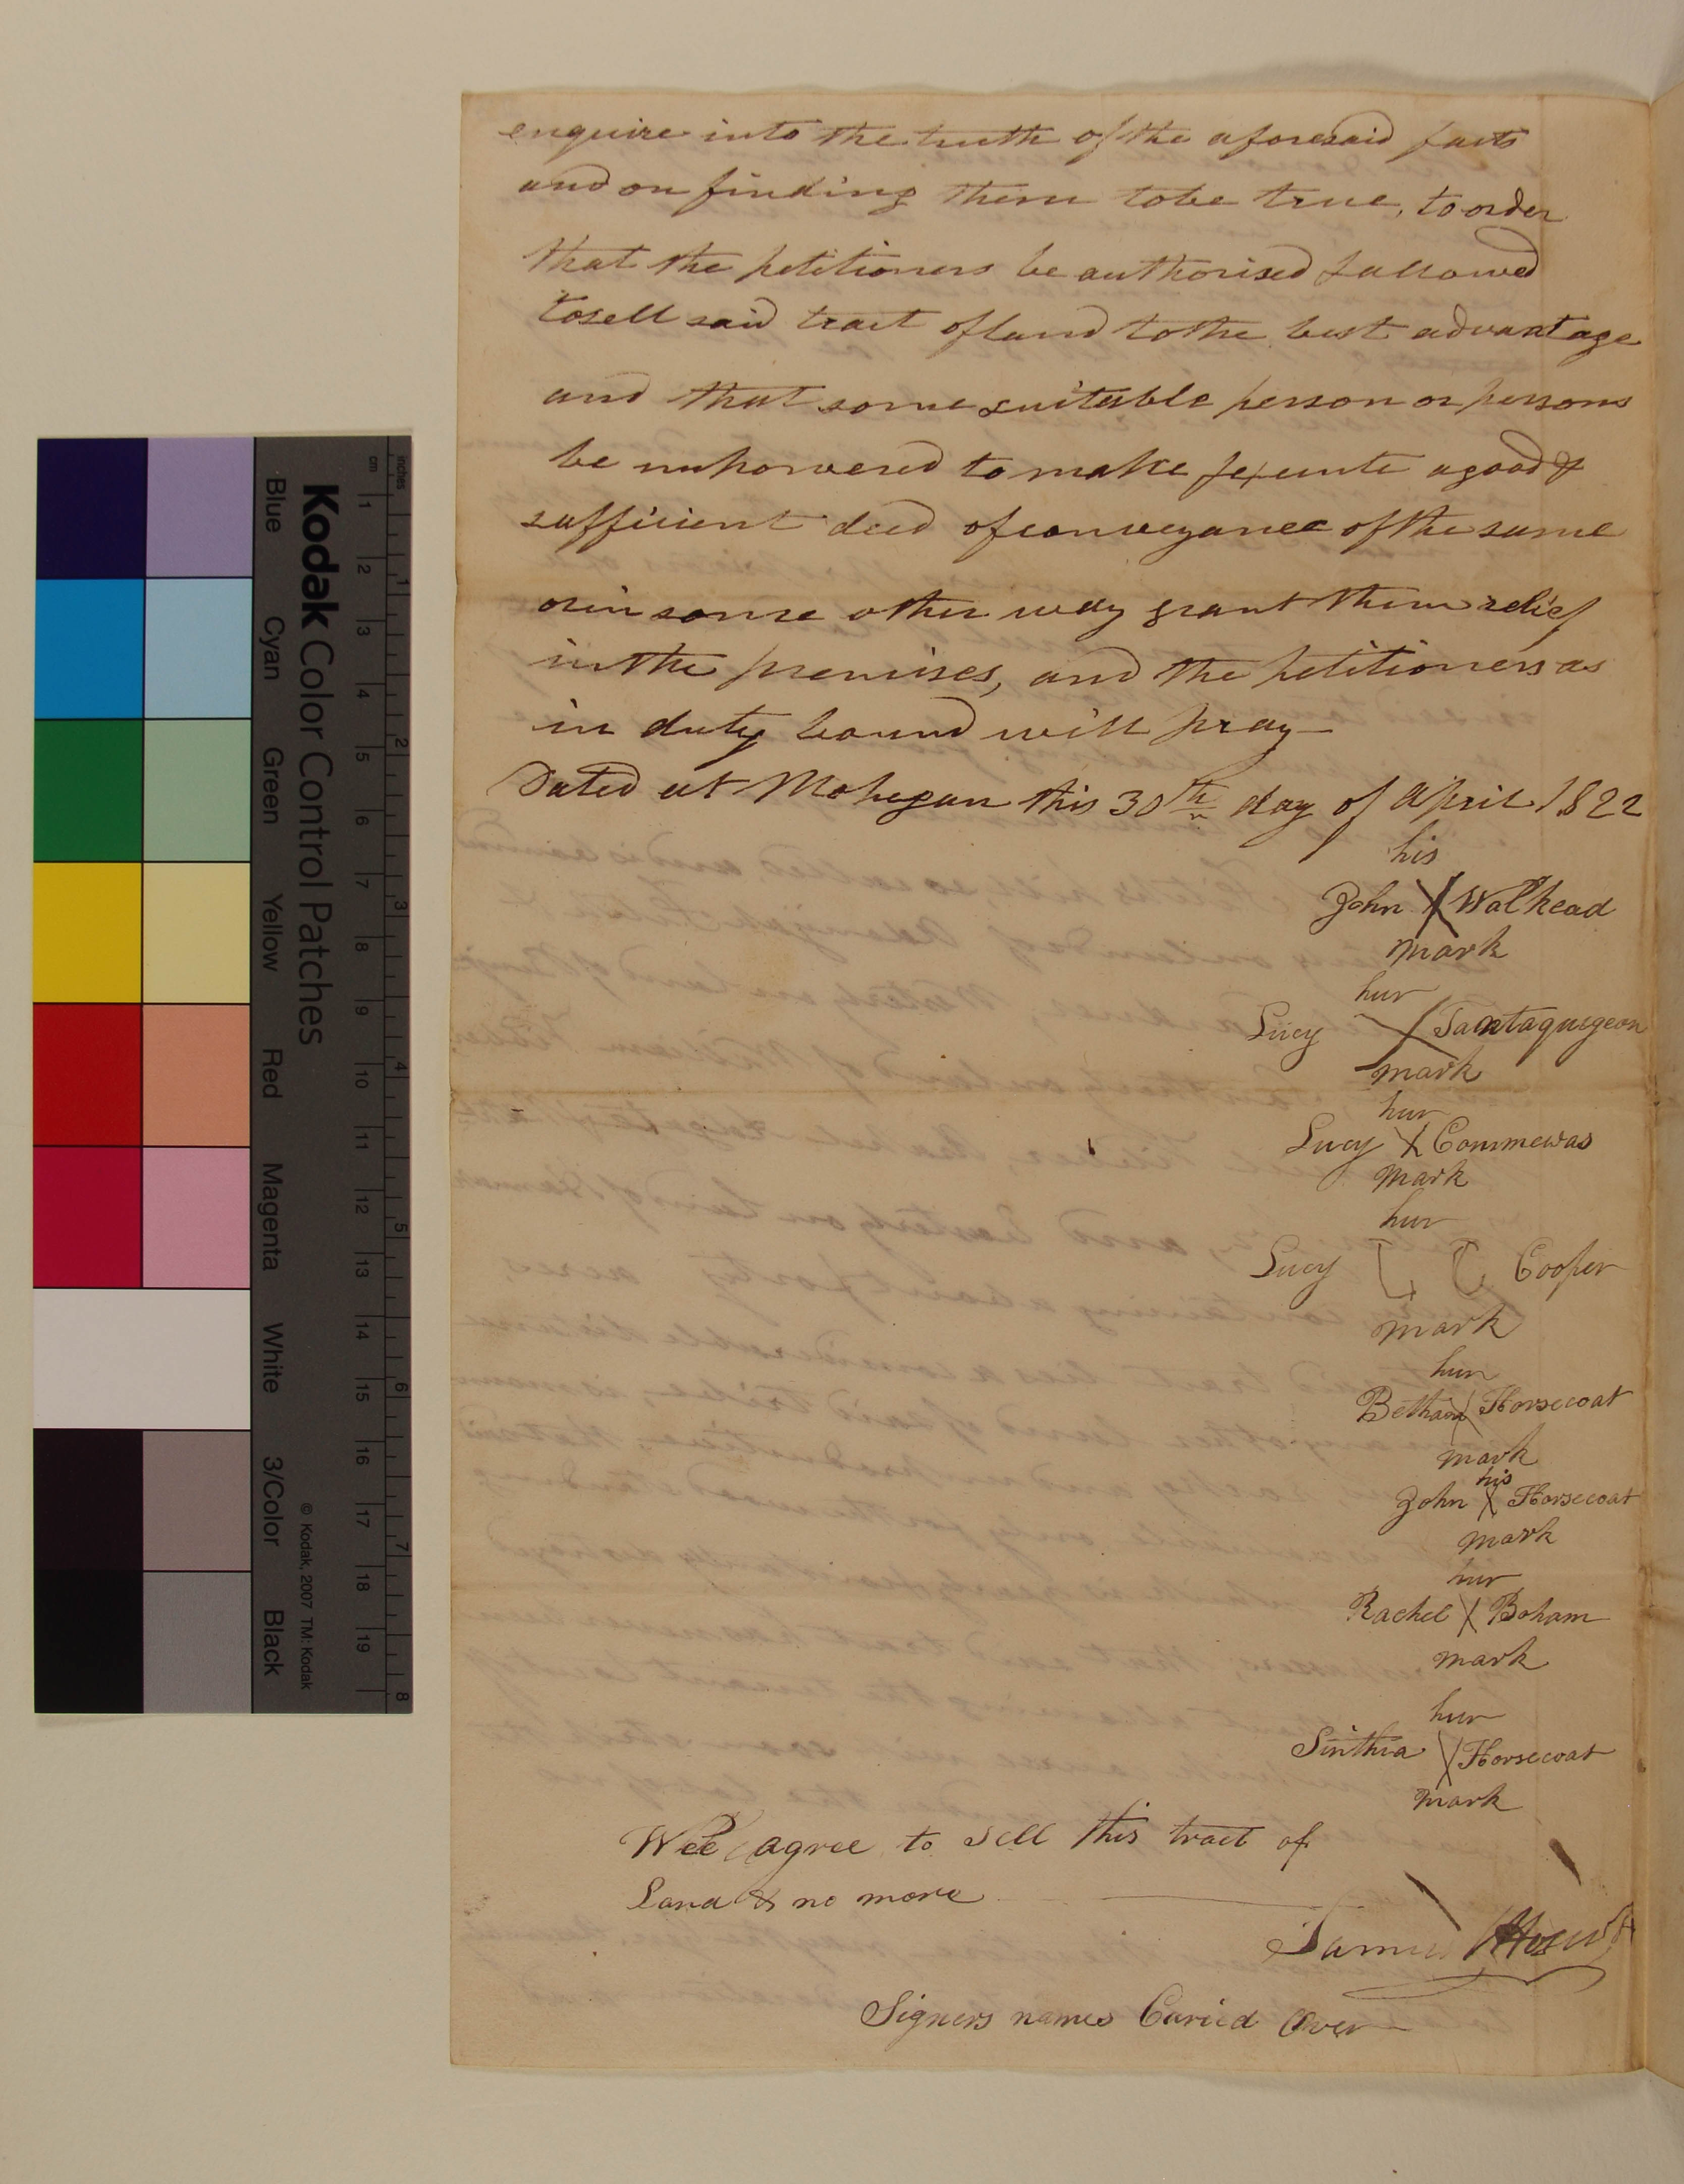 enquire into the truth of the aforesaid facts
and on finding them to be true, to order
that the petitioners be authorised & allowed
to sell said tract of land to the best advantage
and that some suitable person or persons
be impowered to make & execute a good &
sufficient deed of conveyance of the same
or in some other way grant them relief
in the premises, and the petitioners as
in duty bound will pray—
Dated at Mohegan this 30th day of April 1822
his
John X Walkead
mark
hur
Lucy X Tantaquigeon
mark
hur
Lucy X Commewas
mark
hur
Lucy Cooper
mark
hur
Betham X Horsecoat
mark
his
John X Horsecoat
mark
hur
Rachel X Boham
mark
hur
Sinthia X Horsecoat
mark
Wee agree to sell this tract of
Land & no more
Signers names Caried Over
Kodak Color Control Patches
Blue Cyan Green Yellow Red Magenta White 3/Color Black
© Kodak, 2007 TM: Kodak
inches 1 2 3 4 5 6 7 8
cm 1 2 3 4 5 6 7 8 9 10 11 12 13 14 15 16 17 18 19